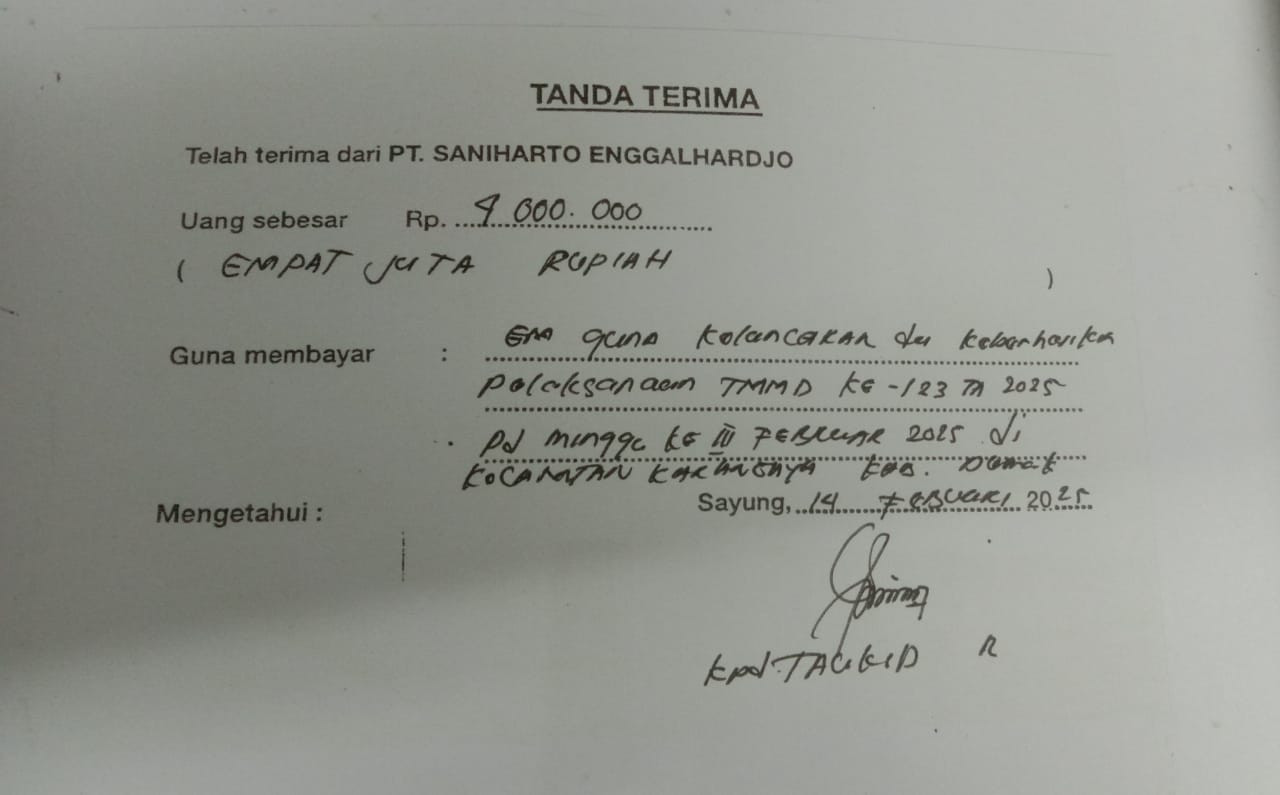 TANDA TERIMA
Telah terima dari PT. SANIHARTO ENGGALHARDJO
Uang sebesar Rp. 4 000. 000
( EMPAT JUTA RUPIAH )
Guna membayar : guna kelancaran dan
pelaksanaan TMMD KE -123 TA 2025
pd minggu KE III FEBRUAR 2025 di
KECAMATAN KARANGANYA KAB. Demak
Mengetahui : Sayung, 14 FEBRUARI 2025